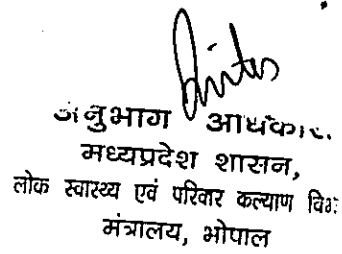 अनुभाग
मध्यप्रदेश शासन,
लोक स्वास्थ्य एवं परिवार कल्याण
मंत्रालय, भोपाल